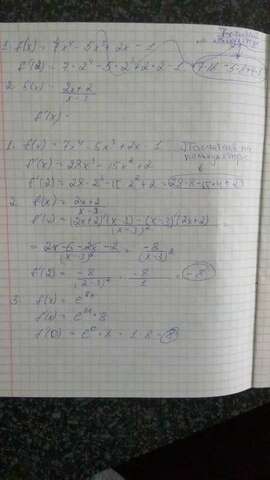 1. f(x) = 7x⁴ - 5x³ + 2x - 1
f'(2) = 7 · 2⁴ - 5 · 2³ + 2 · 2 - 1
2. f(x) = 2x+2/x-3
f'(x) =
1. f(x) = 7x⁴ - 5x³ + 2x - 1
Посчитай на
f'(x) = 28x³ - 15x² + 2
f'(2) = 28 · 2³ - 15 · 2² + 2 = 28 · 8 - 15 · 4 + 2
2. f(x) = 2x+2/x-3
f'(x) = (2x+2)'(x-3) - (x-3)'(2x+2)/(x-3)²
= 2x-6-2x-2/(x-3)² = -8/(x-3)²
f'(2) = -8/(2-3)² = -8/1 = -8
3. f(x) = e⁸ˣ
f'(x) = e⁸ˣ · 8
f'(0) = e⁰ · 8 = 1 · 8 = 8